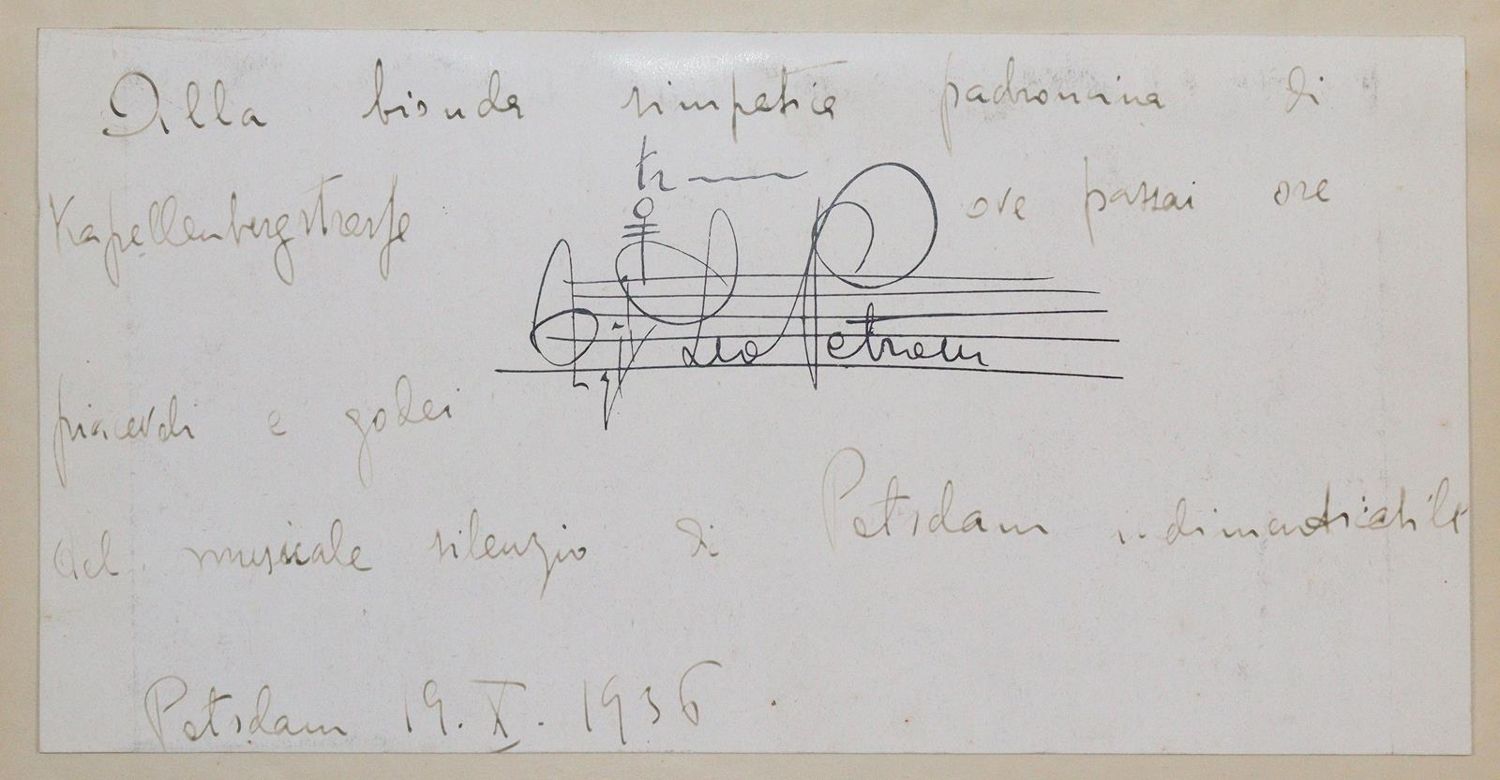 Alla bionda simpatica padroncina di
Kapellenbergstrasse
ove passai ore
tr
Leo Petroni
piacevoli e godei
del musicale silenzio di Potsdam indimenticabile
Potsdam 19. X. 1936